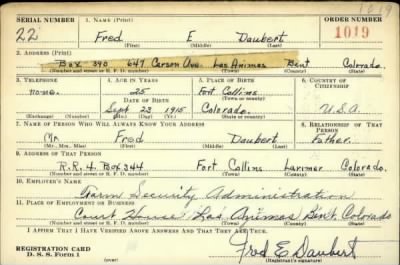 1019
SERIAL NUMBER 1. NAME (Print) ORDER NUMBER
22 Fred E Daubert 1019
(First) (Middle) (Last)
2. ADDRESS (Print)
Box 390 647 Carson Ave. Las Animas Bent Colorado.
(Number and street or R. F. D. number) (Town) (County) (State)
3. TELEPHONE 4. AGE IN YEARS 5. PLACE OF BIRTH 6. COUNTRY OF CITIZENSHIP
none. 25 Fort Collins
DATE OF BIRTH (Town or county)
Sept 23 1915 Colorado. U.S.A.
(Exchange) (Number) (Mo.) (Day) (Yr.) (State or country)
7. NAME OF PERSON WHO WILL ALWAYS KNOW YOUR ADDRESS 8. RELATIONSHIP OF THAT PERSON
Mr. Fred Daubert Father.
(Mr., Mrs., Miss) (First) (Middle) (Last)
9. ADDRESS OF THAT PERSON
R.R. 4. Box 344 Fort Collins Larimer Colorado.
(Number and street or R. F. D. number) (Town) (County) (State)
10. EMPLOYER'S NAME
Farm Security Administration
11. PLACE OF EMPLOYMENT OR BUSINESS
Court House Las Animas Bent, Colorado
(Number and street or R. F. D. number) (Town) (County) (State)
I AFFIRM THAT I HAVE VERIFIED ABOVE ANSWERS AND THAT THEY ARE TRUE.
REGISTRATION CARD
D. S. S. Form 1 (over) Fred E Daubert
(Registrant's signature)